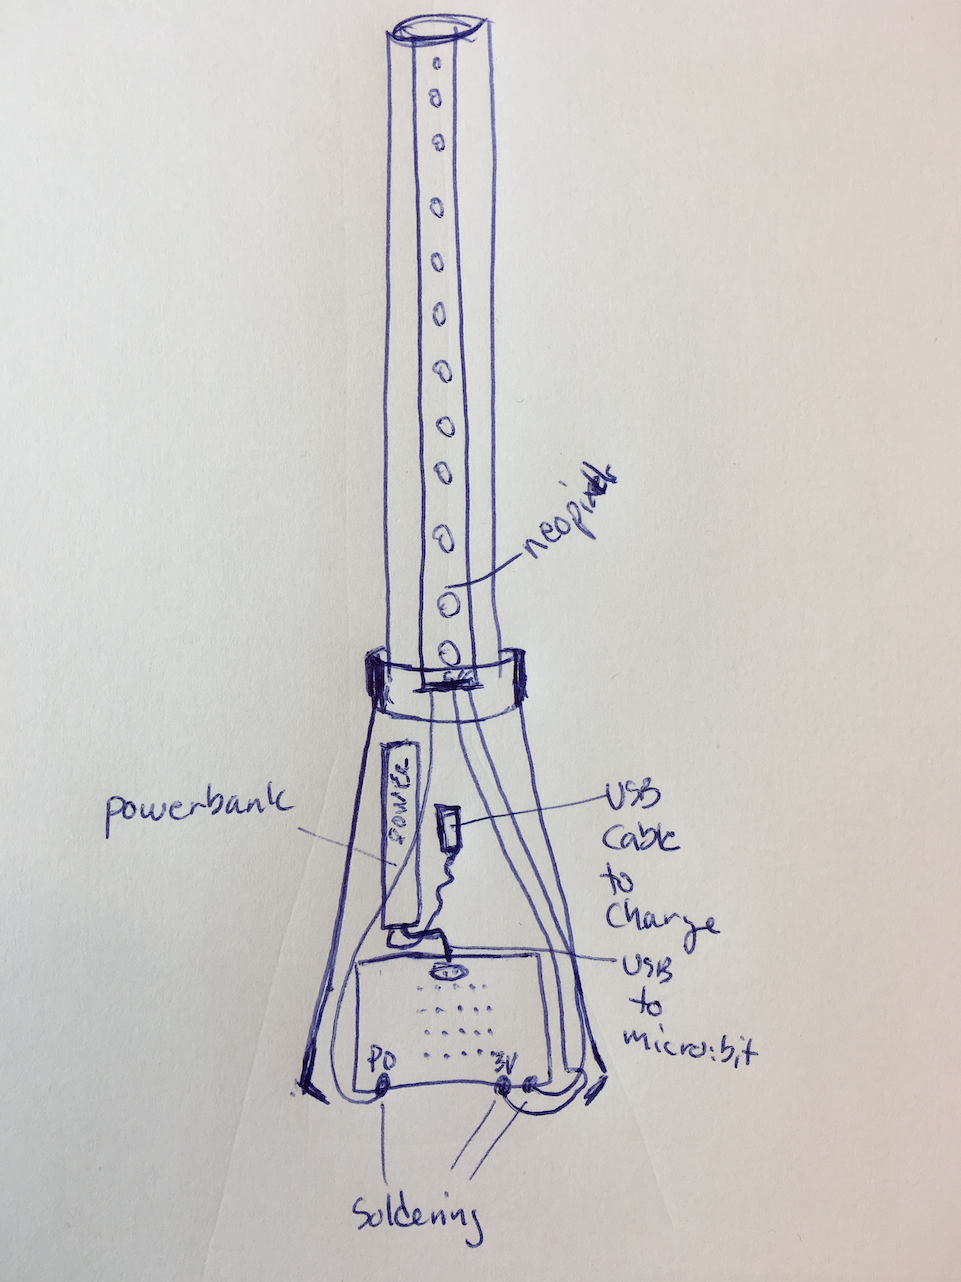 neopixel
POWER
powerbank
USB
Cable
to
Charge
USB
to
micro:bit
P0
3V
Soldering